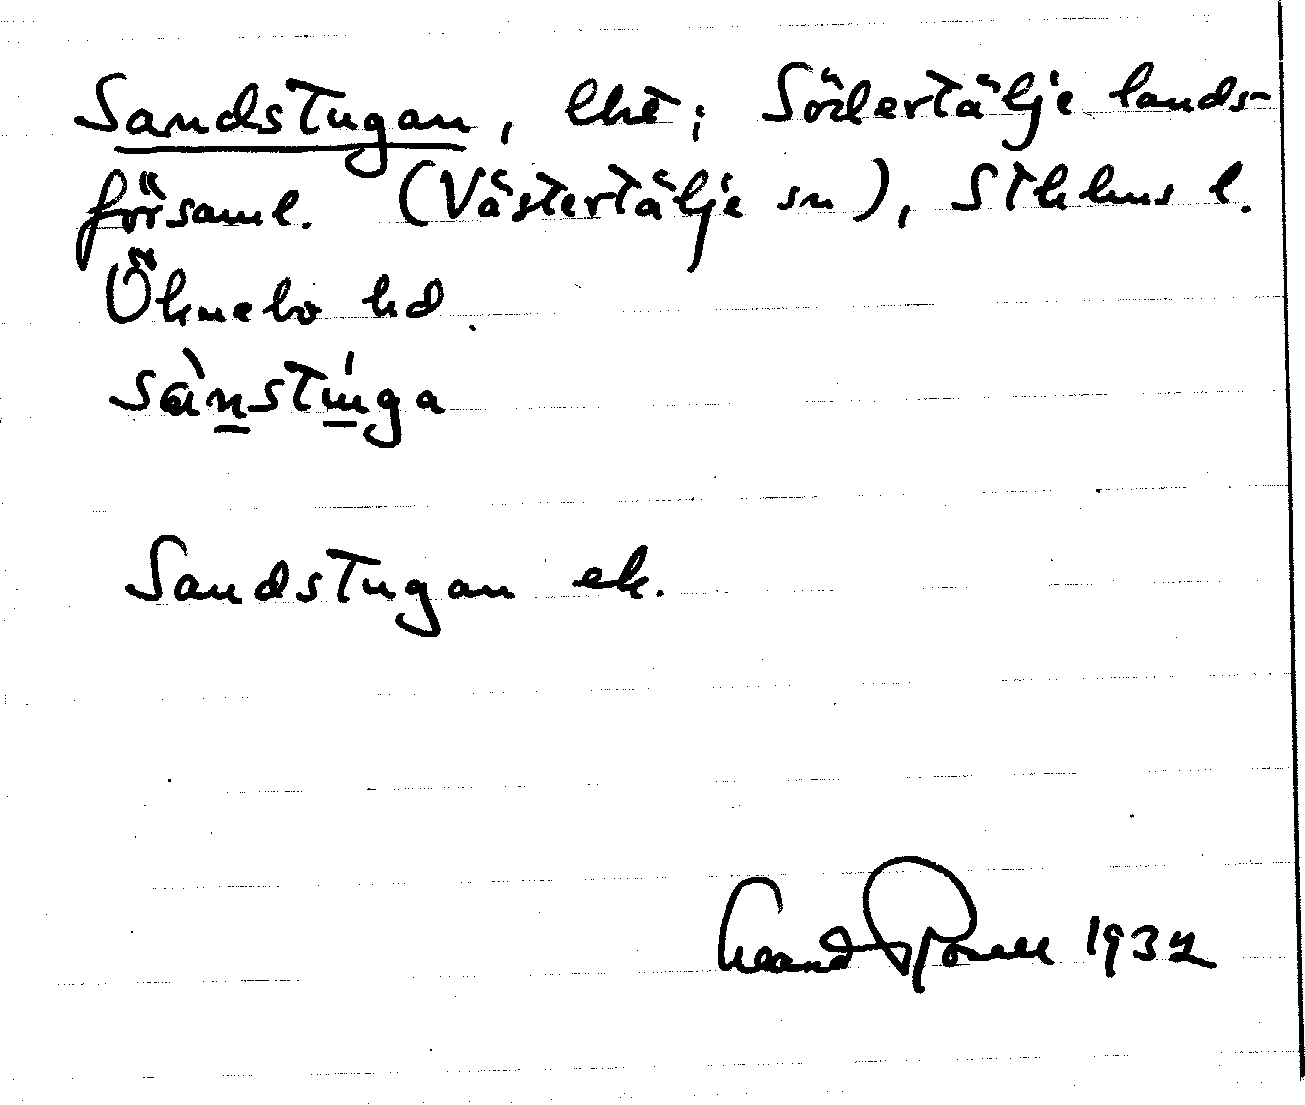 Sandstugan, lht; Södertälje lands-
församl. (Västertälje sn), Sthlms l.
Öknebo hd.
sànstúga
Sandstugan ek.
1932